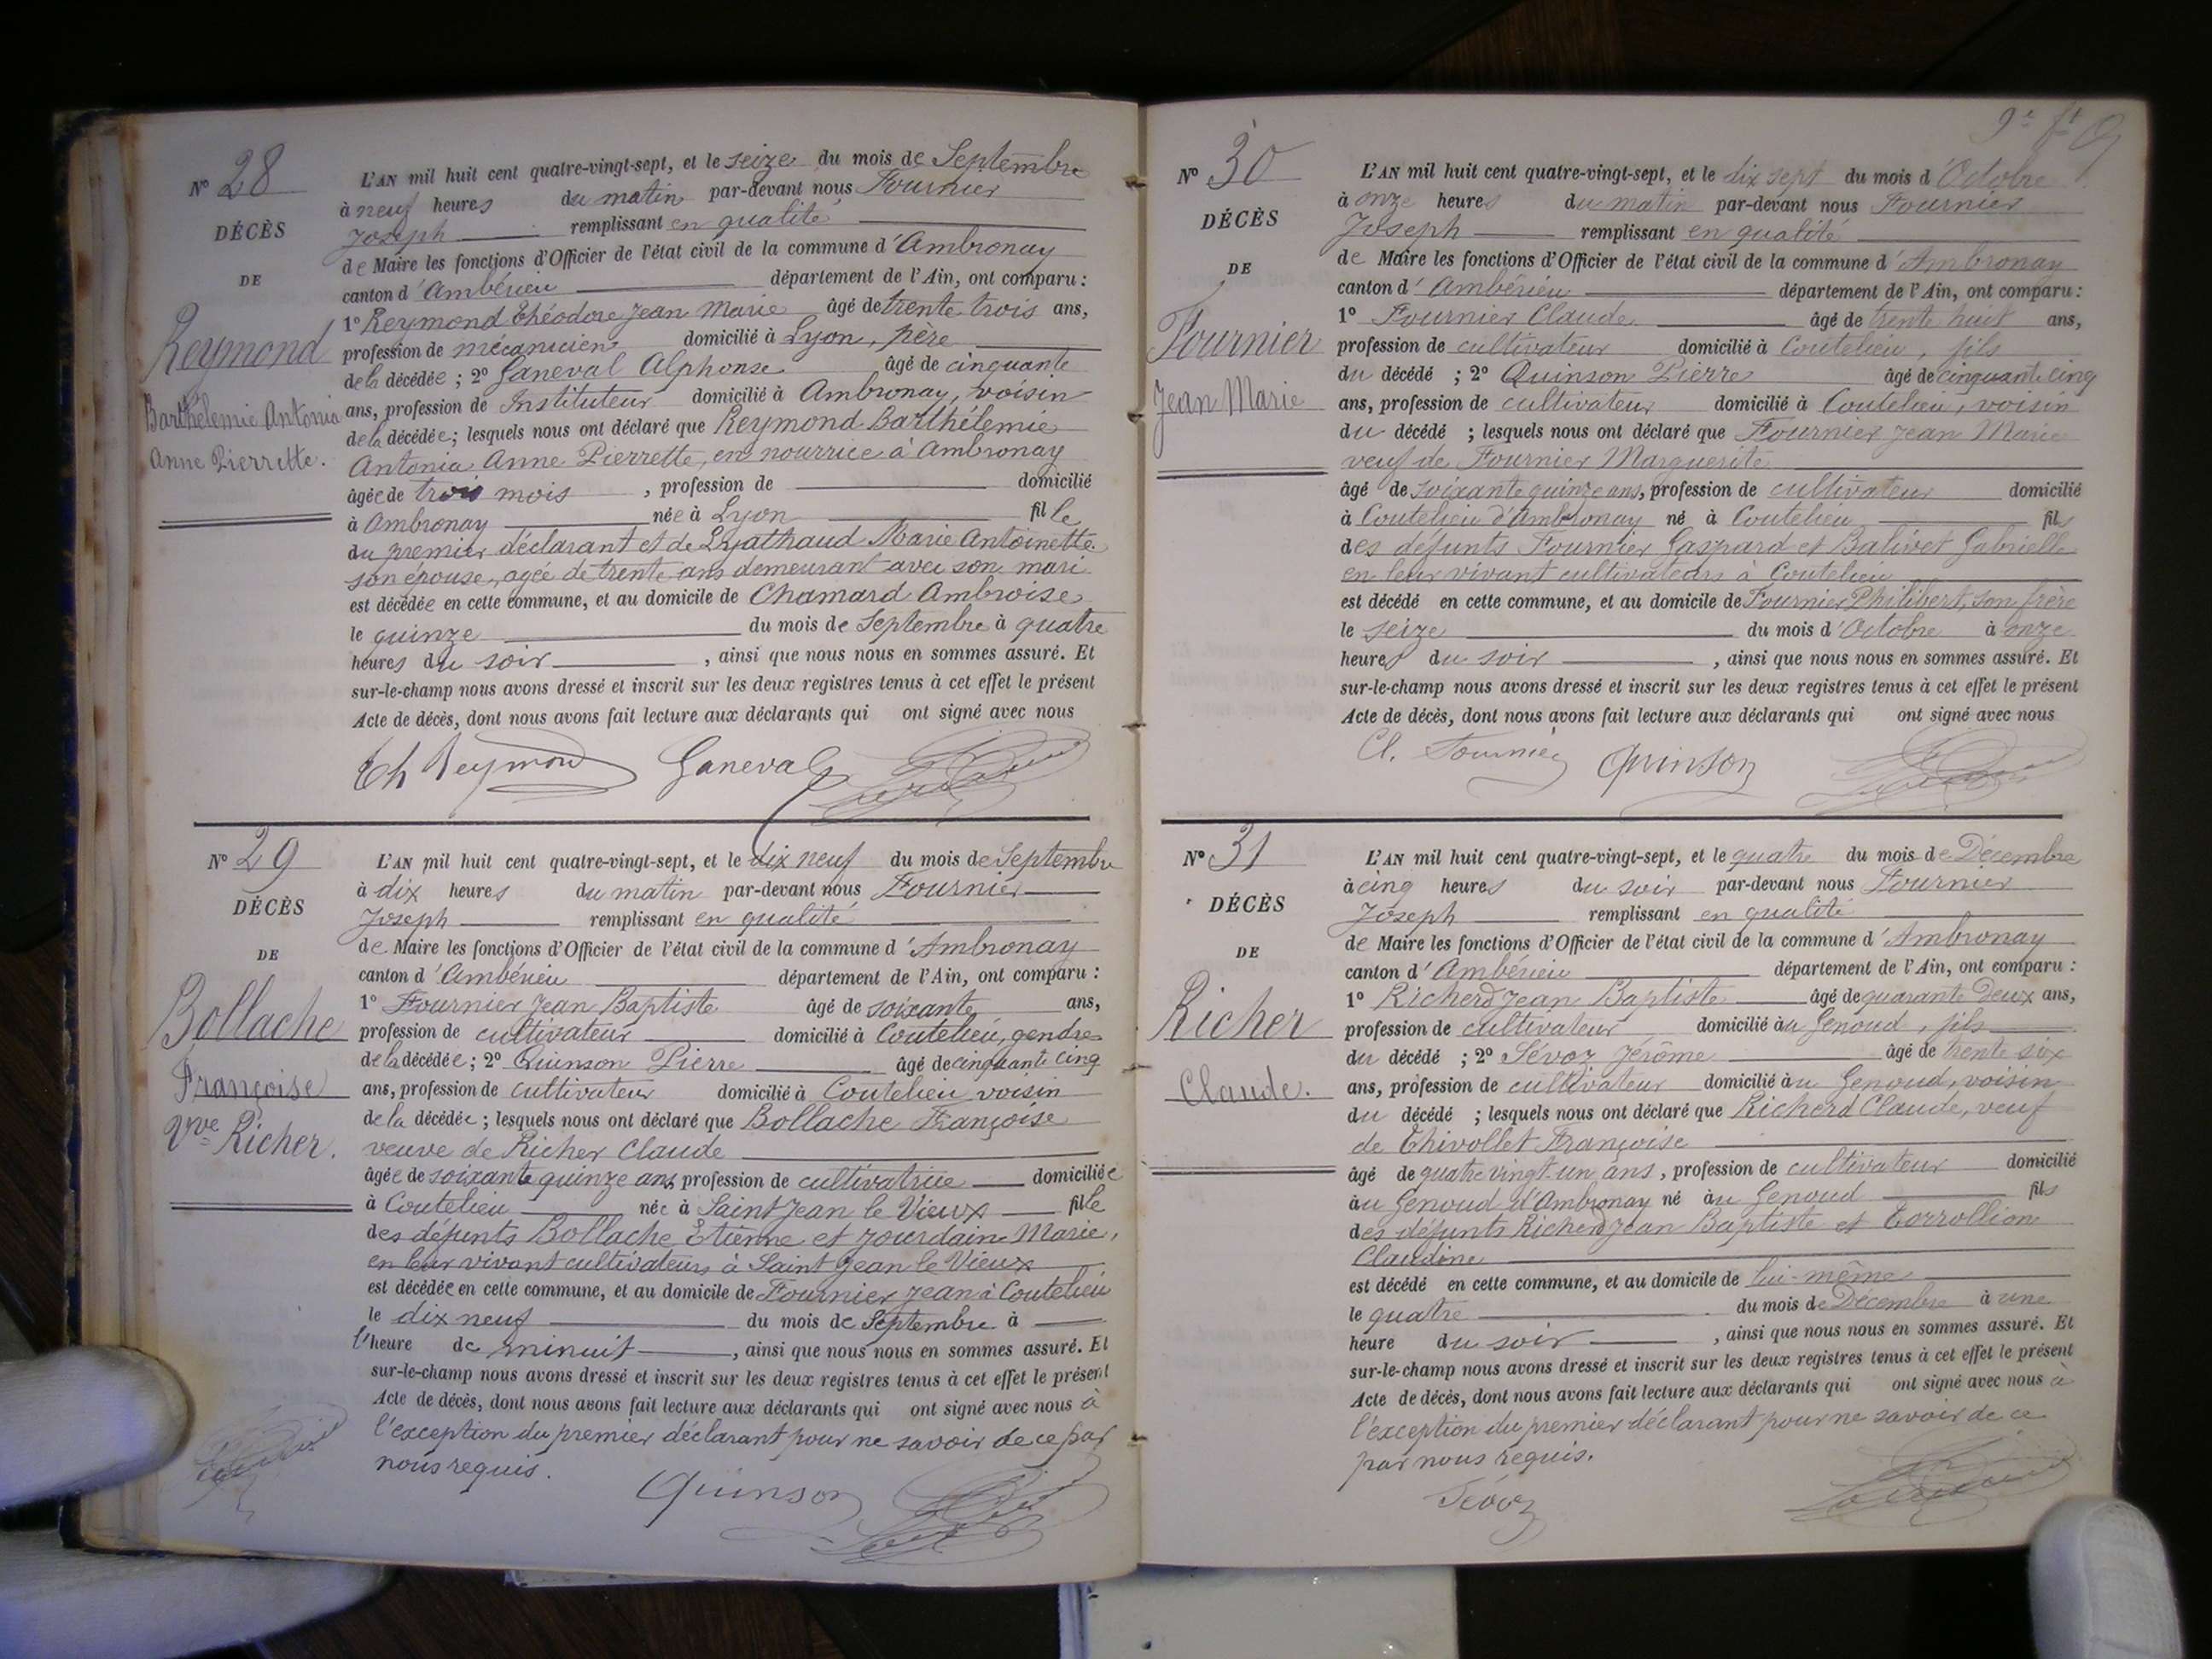 N° 28
DÉCÈS
DE
Reymond
Barthélemie Antonia
Anne Pierrette.
L'AN mil huit cent quatre-vingt-sept, et le seize du mois de Septembre
à neuf heures du matin par-devant nous Fournier
Joseph remplissant en qualité
de Maire les fonctions d'Officier de l'état civil de la commune d'Ambronay
canton d'Ambérieu département de l'Ain, ont comparu :
1° Reymond Théodore Jean Marie âgé de trente trois ans,
profession de mécanicien domicilié à Lyon, père
de la décédée ; 2° Ganeval Alphonse âgé de cinquante
ans, profession de Instituteur domicilié à Ambronay, voisin
de la décédée ; lesquels nous ont déclaré que Reymond Barthélemie
Antonia Anne Pierrette, en nourrice à Ambronay
âgée de trois mois , profession de domicilié
à Ambronay née à Lyon fille
du premier déclarant et de Lyathaud Marie Antoinette
son épouse, agée de trente ans demeurant avec son mari
est décédée en cette commune, et au domicile de Chamard Ambroise
le quinze du mois de Septembre à quatre
heures du soir , ainsi que nous nous en sommes assuré. Et
sur-le-champ nous avons dressé et inscrit sur les deux registres tenus à cet effet le présent
Acte de décès, dont nous avons fait lecture aux déclarants qui ont signé avec nous
Th Reymond Ganeval
N° 29
DÉCÈS
DE
Bollache
Françoise
Vve Richer.
L'AN mil huit cent quatre-vingt-sept, et le dix neuf du mois de Septembre
à dix heures du matin par-devant nous Fournier
Joseph remplissant en qualité
de Maire les fonctions d'Officier de l'état civil de la commune d'Ambronay
canton d'Ambérieu département de l'Ain, ont comparu :
1° Fournier Jean Baptiste âgé de soixante ans,
profession de cultivateur domicilié à Coutelieu, gendre
de la décédée ; 2° Quinson Pierre âgé de cinquante cinq
ans, profession de cultivateur domicilié à Coutelieu voisin
de la décédée ; lesquels nous ont déclaré que Bollache Françoise
veuve de Richer Claude
âgée de soixante quinze ans, profession de cultivatrice domiciliée
à Coutelieu née à Saint Jean le Vieux fille
des défunts Bollache Etienne et Jourdain Marie,
en leur vivant cultivateurs à Saint Jean le Vieux
est décédée en cette commune, et au domicile de Fournier Jean à Coutelieu
le dix neuf du mois de Septembre à
l'heure de minuit , ainsi que nous nous en sommes assuré. Et
sur-le-champ nous avons dressé et inscrit sur les deux registres tenus à cet effet le présent
Acte de décès, dont nous avons fait lecture aux déclarants qui ont signé avec nous à
l'exception du premier déclarant pour ne savoir de ce par
nous requis.
Quinson
N° 30
DÉCÈS
DE
Fournier
Jean Marie
L'AN mil huit cent quatre-vingt-sept, et le dix sept du mois d'Octobre
à onze heures du matin par-devant nous Fournier
Joseph remplissant en qualité
de Maire les fonctions d'Officier de l'état civil de la commune d'Ambronay
canton d'Ambérieu département de l'Ain, ont comparu :
1° Fournier Claude âgé de trente huit ans,
profession de cultivateur domicilié à Coutelieu, fils
du décédé ; 2° Quinson Pierre âgé de cinquante cinq
ans, profession de cultivateur domicilié à Coutelieu, voisin
du décédé ; lesquels nous ont déclaré que Fournier Jean Marie
veuf de Fournier Marguerite
âgé de soixante quinze ans, profession de cultivateur domicilié
à Coutelieu d'Ambronay né à Coutelieu fils
des défunts Fournier Gaspard et Balivet Gabrielle
en leur vivant cultivateurs à Coutelieu
est décédé en cette commune, et au domicile de Fournier Philibert, son frère
le seize du mois d'Octobre à onze
heures du soir , ainsi que nous nous en sommes assuré. Et
sur-le-champ nous avons dressé et inscrit sur les deux registres tenus à cet effet le présent
Acte de décès, dont nous avons fait lecture aux déclarants qui ont signé avec nous
Cl. Fournier Quinson
N° 31
DÉCÈS
DE
Richer
Claude.
L'AN mil huit cent quatre-vingt-sept, et le quatre du mois de Décembre
à cinq heures du soir par-devant nous Fournier
Joseph remplissant en qualité
de Maire les fonctions d'Officier de l'état civil de la commune d'Ambronay
canton d'Ambérieu département de l'Ain, ont comparu :
1° Richerd Jean Baptiste âgé de quarante deux ans,
profession de cultivateur domicilié au Genoud, fils
du décédé ; 2° Sévoz Jérôme âgé de trente six
ans, profession de cultivateur domicilié au Genoud, voisin
du décédé ; lesquels nous ont déclaré que Richerd Claude, veuf
de Thivollet Françoise
âgé de quatre vingt un ans, profession de cultivateur domicilié
au Genoud d'Ambronay né au Genoud fils
des défunts Richerd Jean Baptiste et Torrollion
Claudine
est décédé en cette commune, et au domicile de lui-même
le quatre du mois de Décembre à une
heure du soir , ainsi que nous nous en sommes assuré. Et
sur-le-champ nous avons dressé et inscrit sur les deux registres tenus à cet effet le présent
Acte de décès, dont nous avons fait lecture aux déclarants qui ont signé avec nous à
l'exception du premier déclarant pour ne savoir de ce
par nous requis.
Sévoz